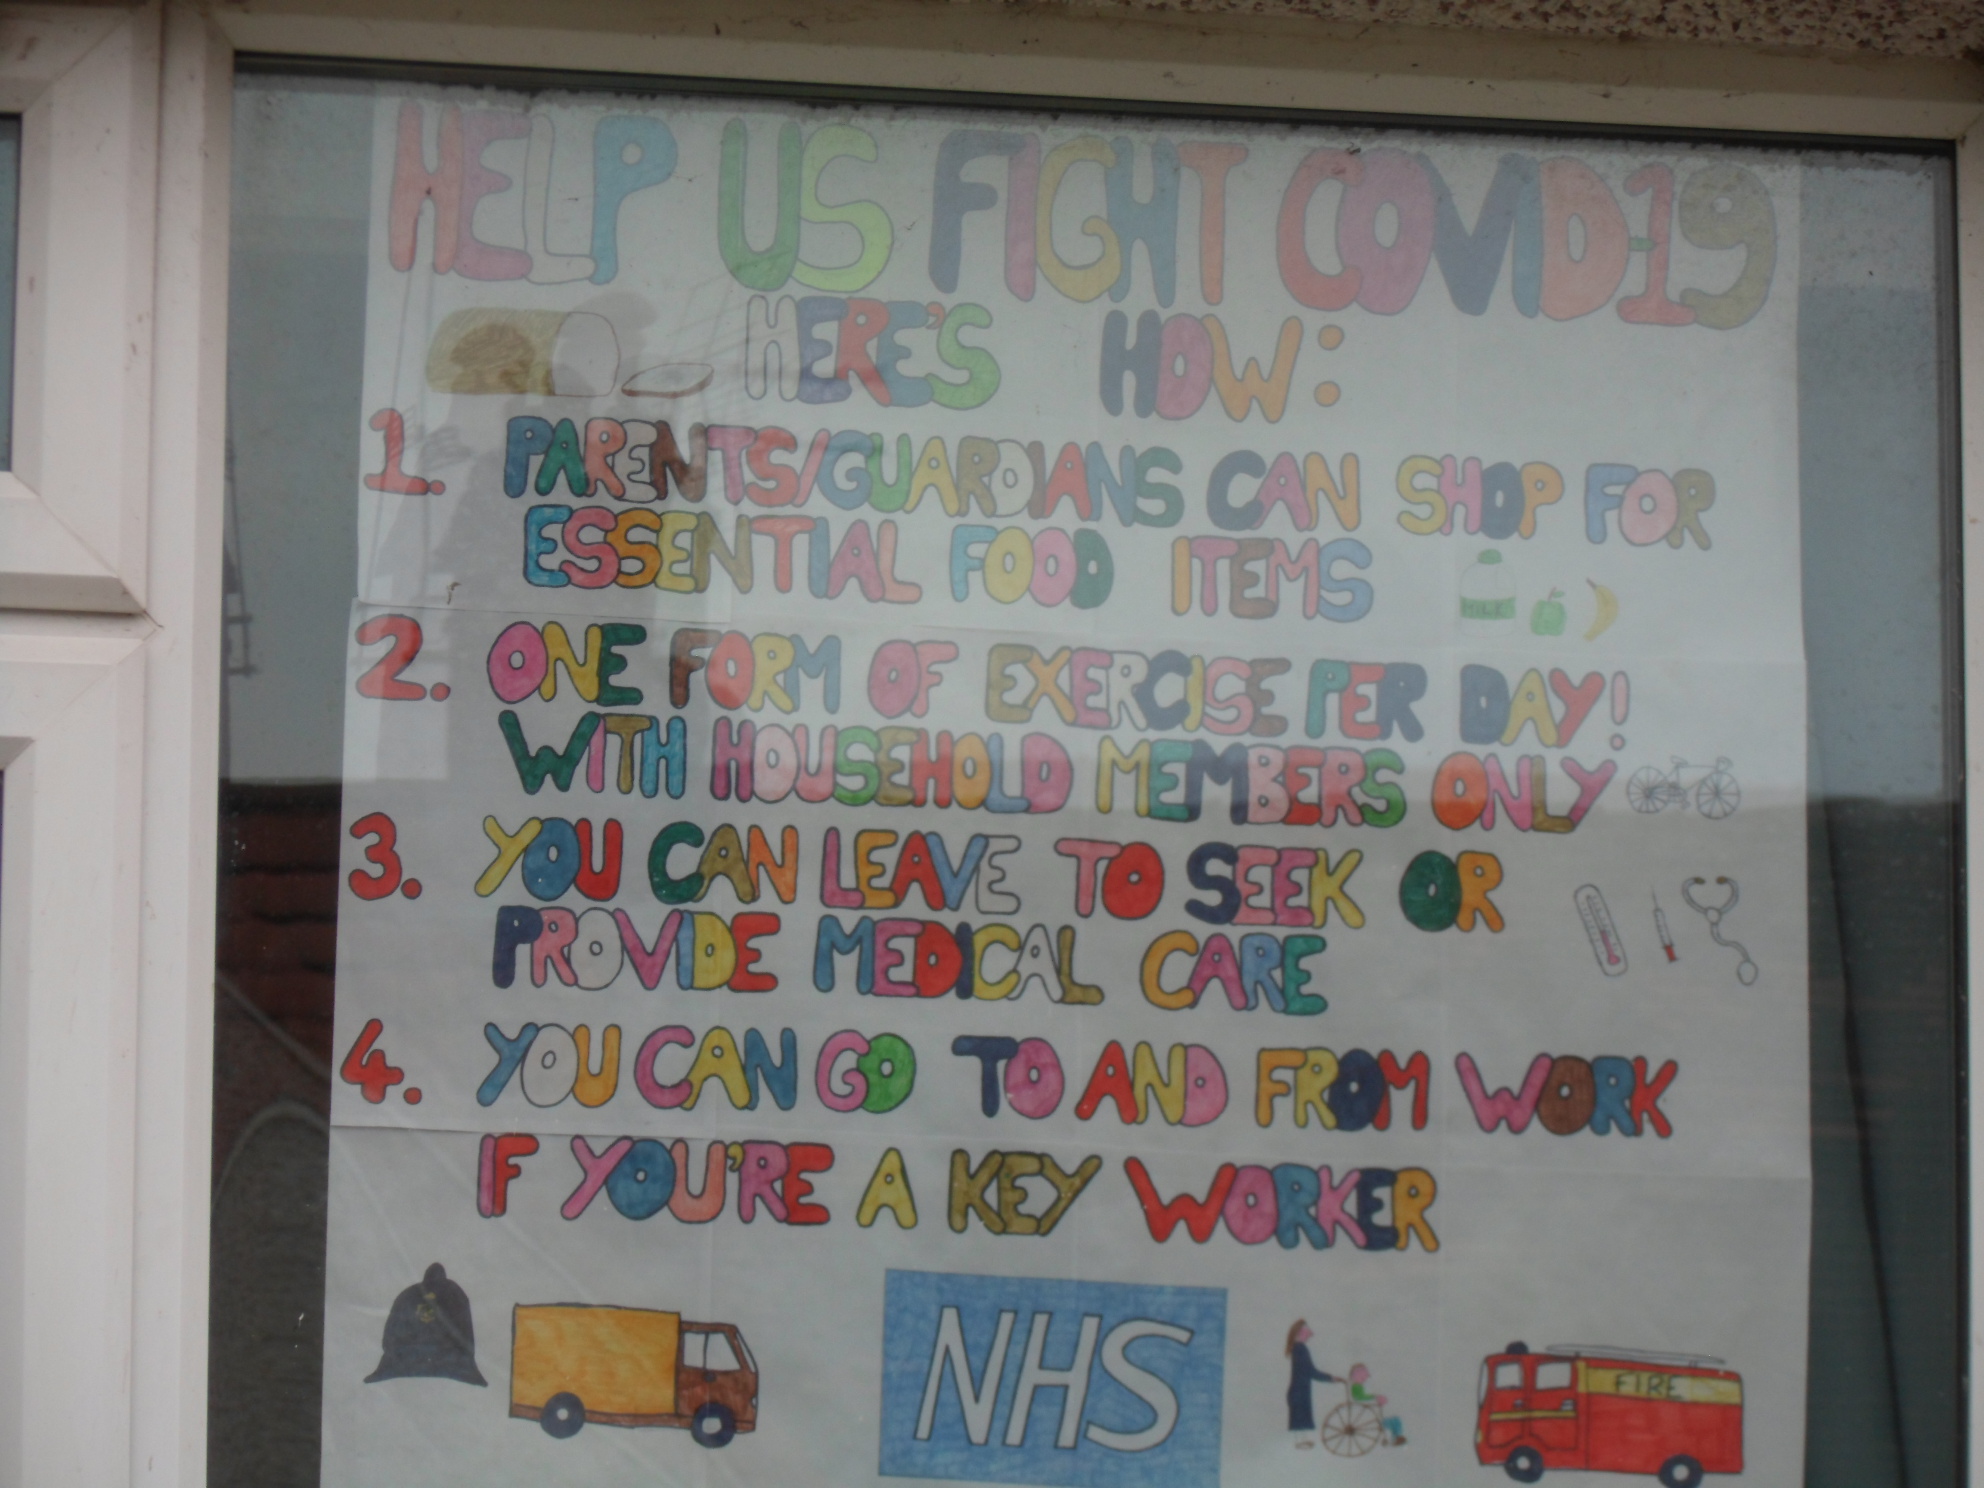 HELP US FIGHT COVID-19
HERE'S HOW:
1. PARENTS/GUARDIANS CAN SHOP FOR
ESSENTIAL FOOD ITEMS
MILK
2. ONE FORM OF EXERCISE PER DAY!
WITH HOUSEHOLD MEMBERS ONLY
3. YOU CAN LEAVE TO SEEK OR
PROVIDE MEDICAL CARE
4. YOU CAN GO TO AND FROM WORK
IF YOU'RE A KEY WORKER
NHS
FIRE